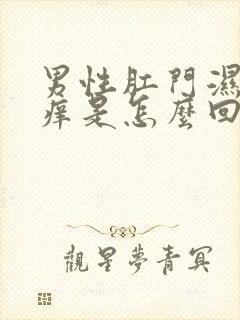 男性肛門濕
痒是怎麼回
觀星夢青冥